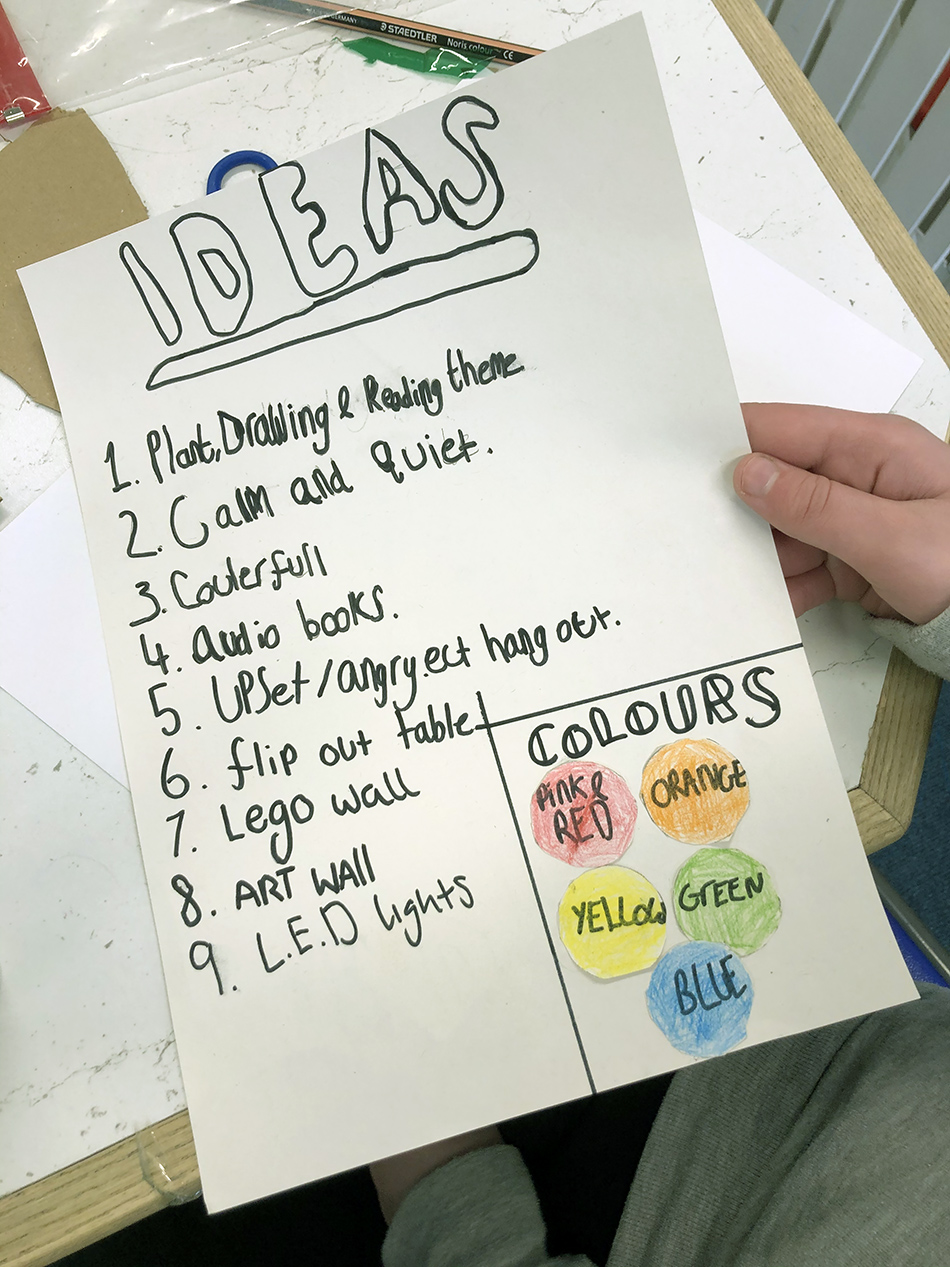 GERMANY STAEDTLER Noris colour CE
IDEAS
1. Plant, Drawing & Reading theme
2. Calm and quiet.
3. Coulerfull
4. audio books.
5. UPSet/angry.ect hang out.
6. flip out table
7. Lego wall
8. ART WALL
9. L.E.D lights
COLOURS
PiNK &
RED
ORANGE
YELLOW
GREEN
BLUE